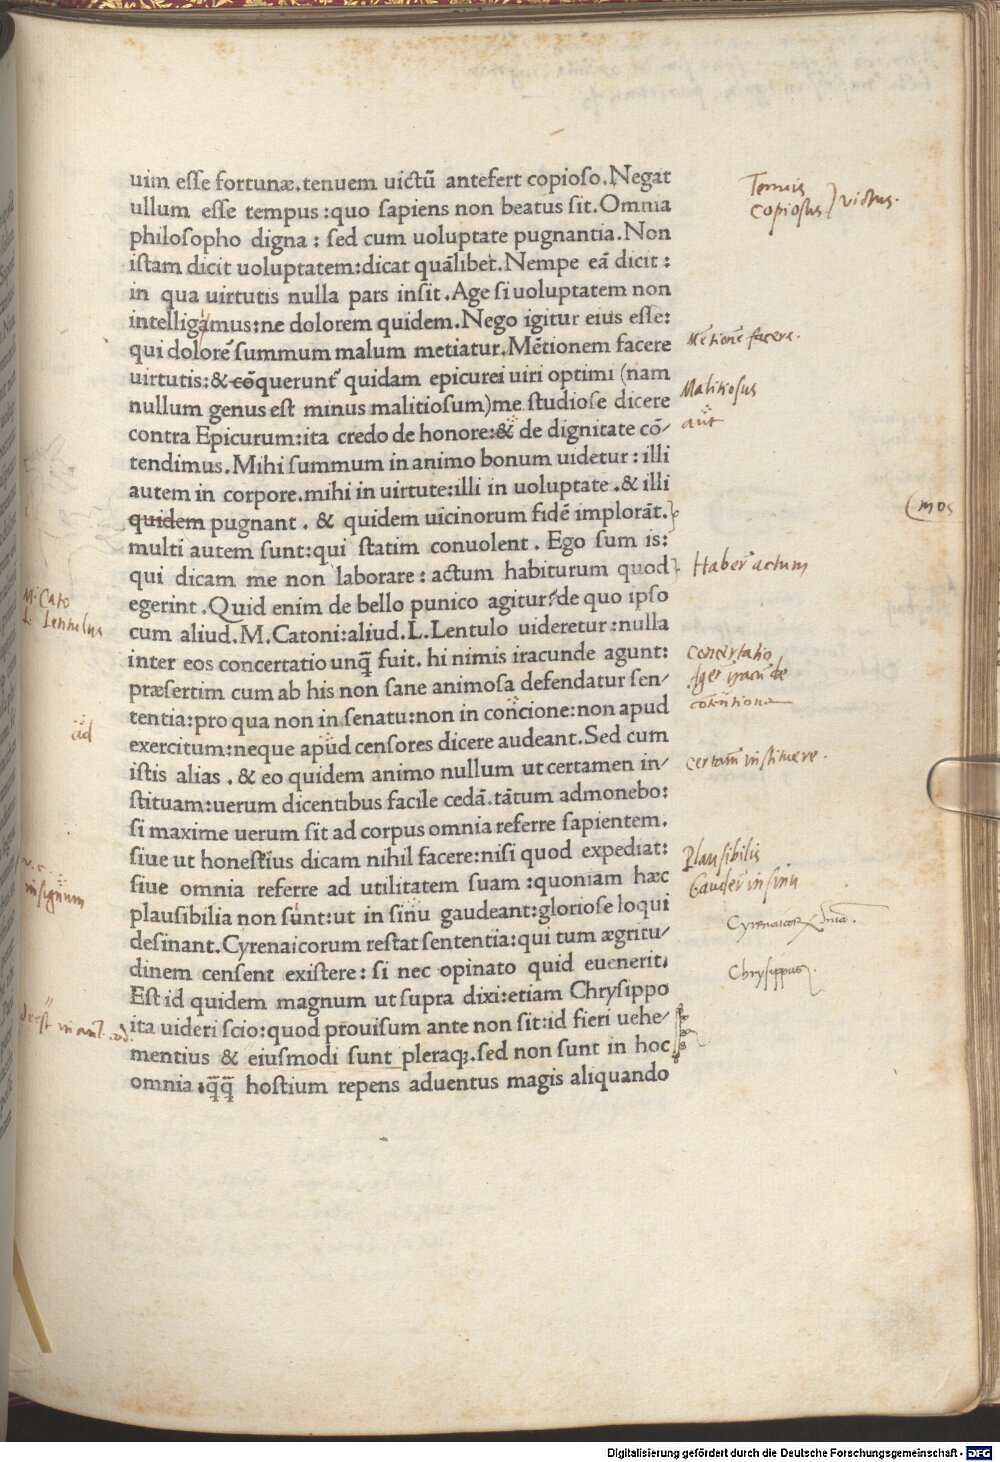 uim eſſe fortunæ.tenuem uictū antefert copioſo.Negat
ullum eſſe tempus:quo ſapiens non beatus ſit.Omnia
philoſopho digna: ſed cum uoluptate pugnantia.Non
iſtam dicit uoluptatem:dicat quālibet.Nempe eā dicit:
in qua uirtutis nulla pars inſit.Age ſi uoluptatem non
intelligamus:ne dolorem quidem.Nego igitur eius eſſe:
qui dolorē ſummum malum metiatur.Mētionem facere
uirtutis:& cōquerunt᷑ quidam epicurei uiri optimi (nam
nullum genus eſt minus malitioſum)me ſtudioſe dicere
contra Epicurum:ita credo de honore:& de dignitate cō/
tendimus.Mihi ſummum in animo bonum uidetur:illi
autem in corpore.mihi in uirtute:illi in uoluptate.& illi
quidem pugnant. & quidem uicinorum fidē implorāt.
multi autem ſunt:qui ſtatim conuolent. Ego ſum is:
qui dicam me non laborare: actum habiturum quod
egerint.Quid enim de bello punico agitur:de quo ipſo
cum aliud.M.Catoni:aliud.L.Lentulo uideretur:nulla
inter eos concertatio unq̄ fuit. hi nimis iracunde agunt:
præſertim cum ab his non ſane animoſa defendatur ſen/
tentia:pro qua non in ſenatu:non in concione:non apud
exercitum:neque apud cenſores dicere audeant.Sed cum
iſtis alias. & eo quidem animo nullum ut certamen in/
ſtituam:uerum dicentibus facile cedā.tātum admonebo:
ſi maxime uerum ſit ad corpus omnia referre ſapientem.
ſiue ut honeſtius dicam nihil facere:niſi quod expediat:
ſiue omnia referre ad utilitatem ſuam:quoniam hæc
plauſibilia non ſunt:ut in ſinu gaudeant:glorioſe loqui
deſinant.Cyrenaicorum reſtat ſententia:qui tum ægritu/
dinem cenſent exiſtere: ſi nec opinato quid euenerit.
Eſt id quidem magnum ut ſupra dixi:etiam Chryſippo
ita uideri ſcio:quod prouiſum ante non ſit:id fieri uehe/
mentius & eiuſmodi ſunt pleraq;.ſed non ſunt in hoc
omnia.q̄q̄ hoſtium repens aduentus magis aliquando
Tenuis
Copioſus) victus.
Mētionē facere.
Malitioſus
aut
(mos
Haber' actum
M. Cato
L. Lentulus
concertatio
ad
certam̄ inſtituere.
Plauſibilis
Gauder' in ſinu
Chryſippus.
Digitalisierung gefördert durch die Deutsche Forschungsgemeinschaft - DFG